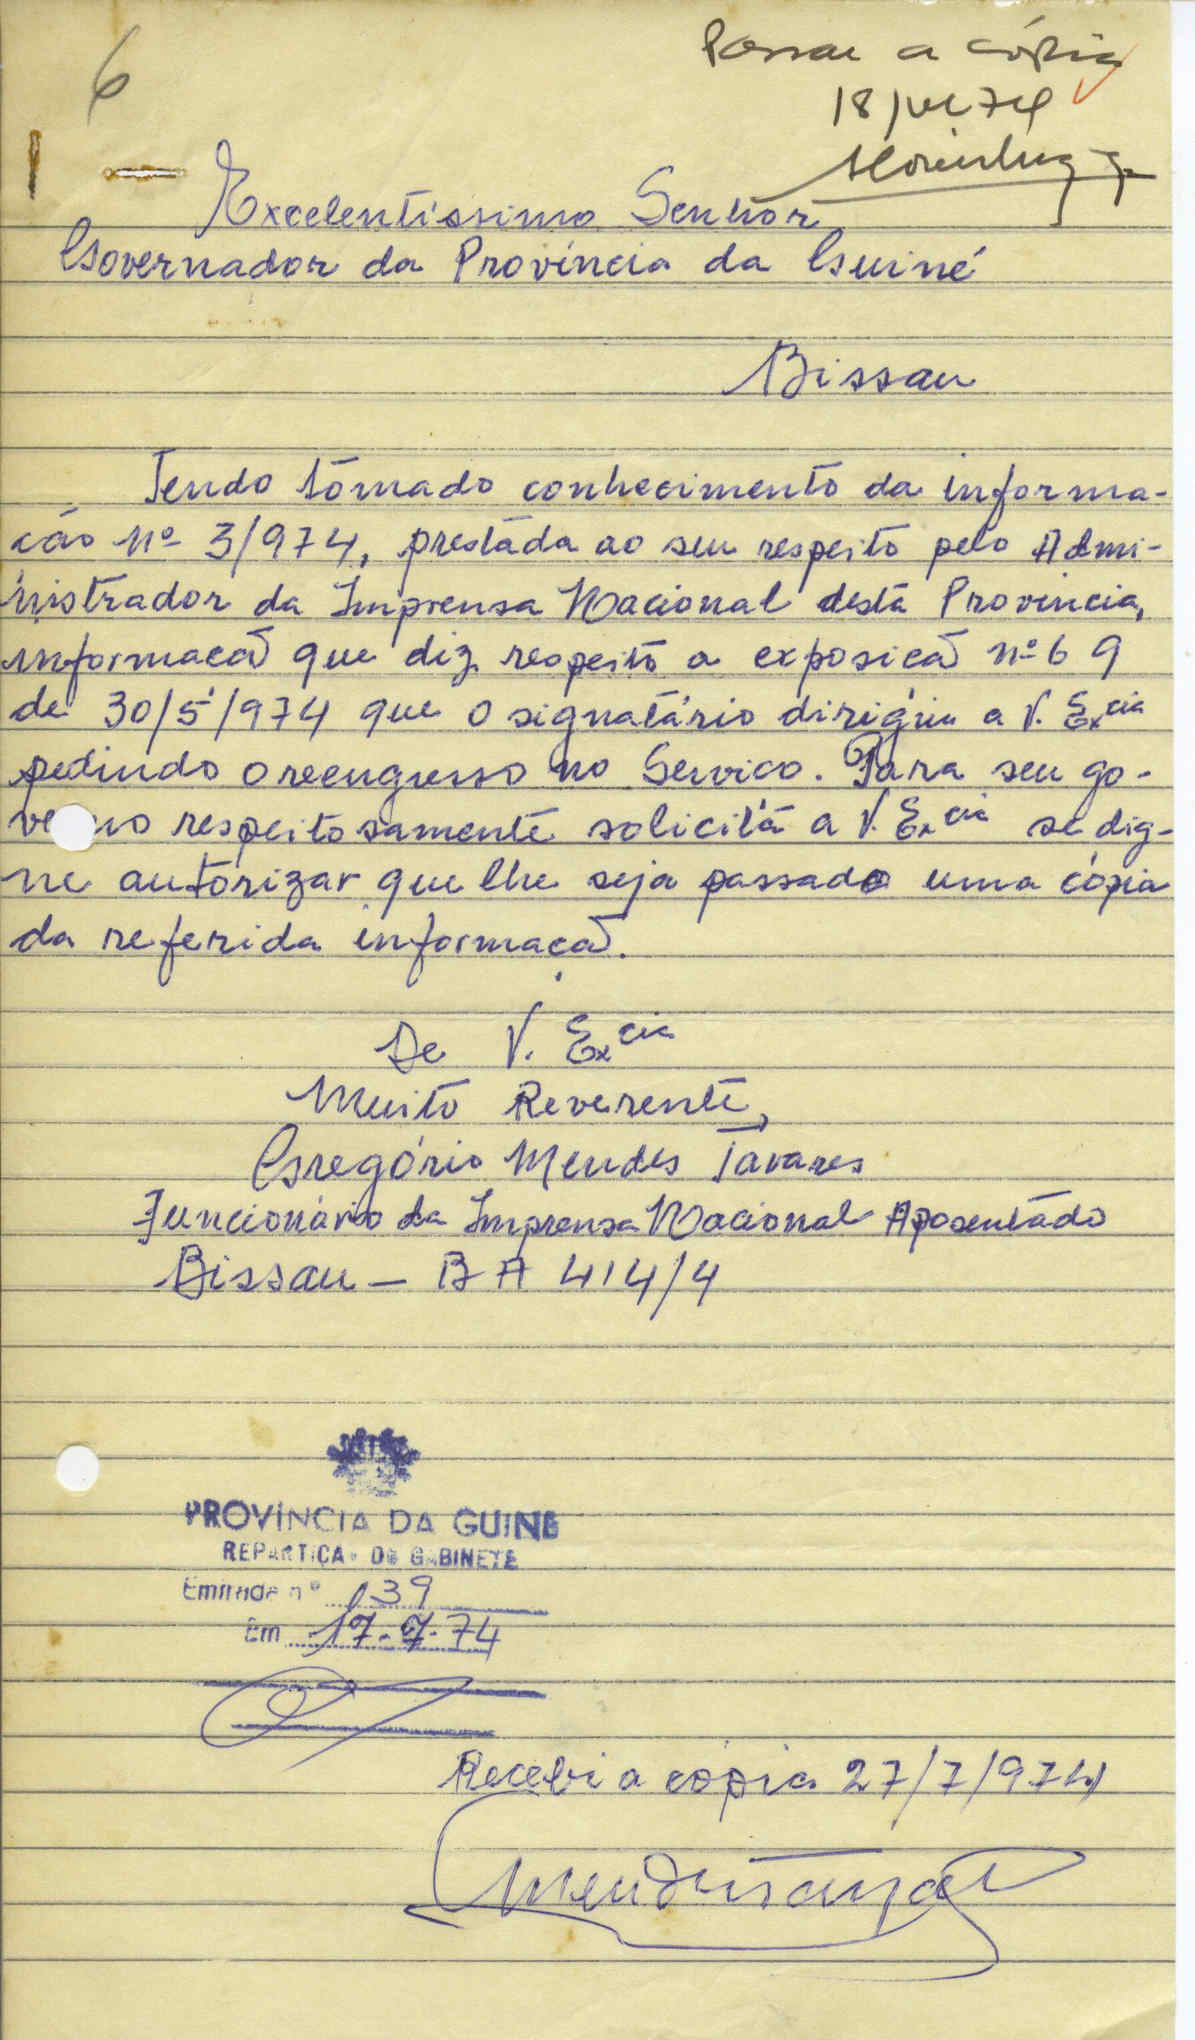 6
Passar a cópia
18 jul 74
Excelentíssimo Senhor
Governador da Província da Guiné
Bissau
Tendo tomado conhecimento da informa-
ção nº 3/974, prestada ao seu respeito pelo Admi-
nistrador da Imprensa Nacional desta Província,
informacã que diz respeito a exposicã nº 6 9
de 30/5/974 que o signatário dirigiu a V. Excia
pedindo o reengresso no Servico. Para seu go-
ve no respeitosamente solicita a V. Excia se dig-
ne autorizar que lhe seja passado uma cópia
da referida informacã.
De V. Excia
Muito Reverente,
Gregório Mendes Tavares
Funcionário da Imprensa Nacional Aposentado
Bissau – BA 414/4
PROVÍNCIA DA GUINE
REPARTIÇA DE GABINETE
Entrada nº 139
Em 17-7-74
Recebi a cópia 27/7/974